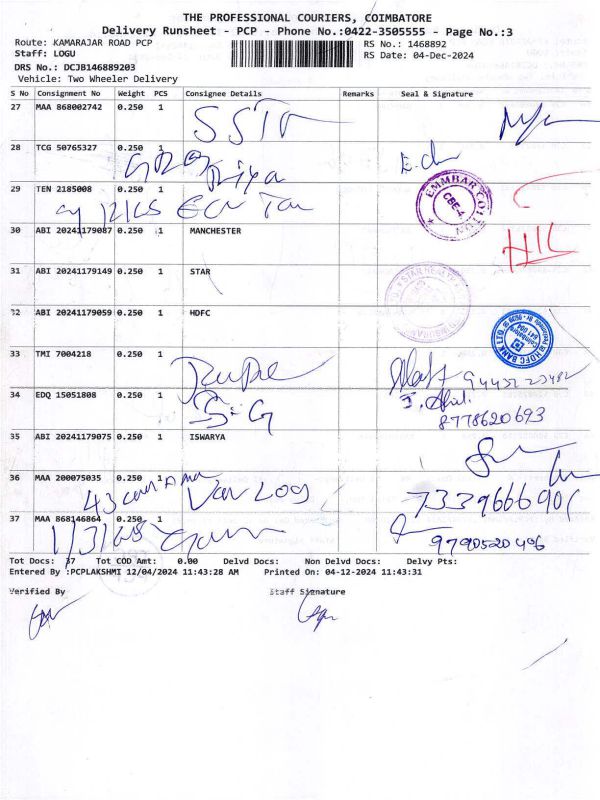 THE PROFESSIONAL COURIERS, COIMBATORE
Delivery Runsheet - PCP - Phone No.:0422-3505555 - Page No.:3
Route: KAMARAJAR ROAD PCP RS No.: 1468892
Staff: LOGU RS Date: 04-Dec-2024
DRS No.: DCJB146889203
Vehicle: Two Wheeler Delivery
S No Consignment No Weight PCS Consignee Details Remarks Seal & Signature
27 MAA 868002742 0.250 1
28 TCG 50765327 0.250 1
Priya
29 TEN 2185008 0.250 1
EMMBAR COTTON
CBE-4
30 ABI 20241179087 0.250 1 MANCHESTER
31 ABI 20241179149 0.250 1 STAR
STAR HEALTH
32 ABI 20241179059 0.250 1 HDFC
HDFC BANK LTD
33 TMI 7004218 0.250 1
9443223482
34 EDQ 15051808 0.250 1
8778620693
35 ABI 20241179075 0.250 1 ISWARYA
36 MAA 200075035 0.250 1
37 MAA 868146864 0.250 1
9790520496
Tot Docs: 37 Tot COD Amt: 0.00 Delvd Docs: Non Delvd Docs: Delvy Pts:
Entered By :PCPLAKSHMI 12/04/2024 11:43:28 AM Printed On: 04-12-2024 11:43:31
Verified By Staff Signature